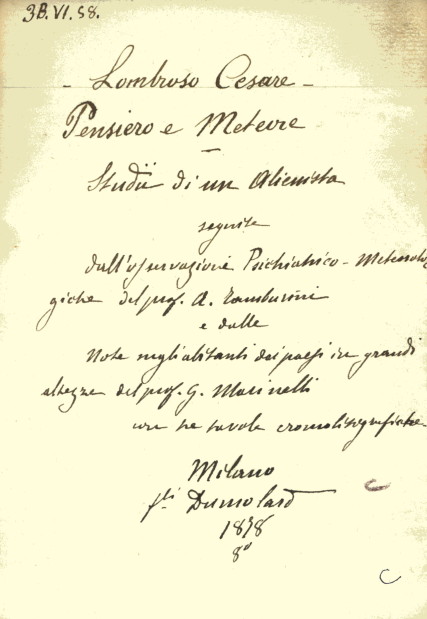 3B.VI.58.
- Lombroso Cesare -
Pensiero e Meteore
Studii di un Alienista
seguite
dall'osservazioni Psichiatrico - Meteorolo
giche del prof. A. Tamburini
e dalle
Note sugli abitanti dei paesi in grandi
altezze del prof. G. Marinelli
con tre tavole cromolitografiche
Milano
f.lli Dumolard
1878
8°
C